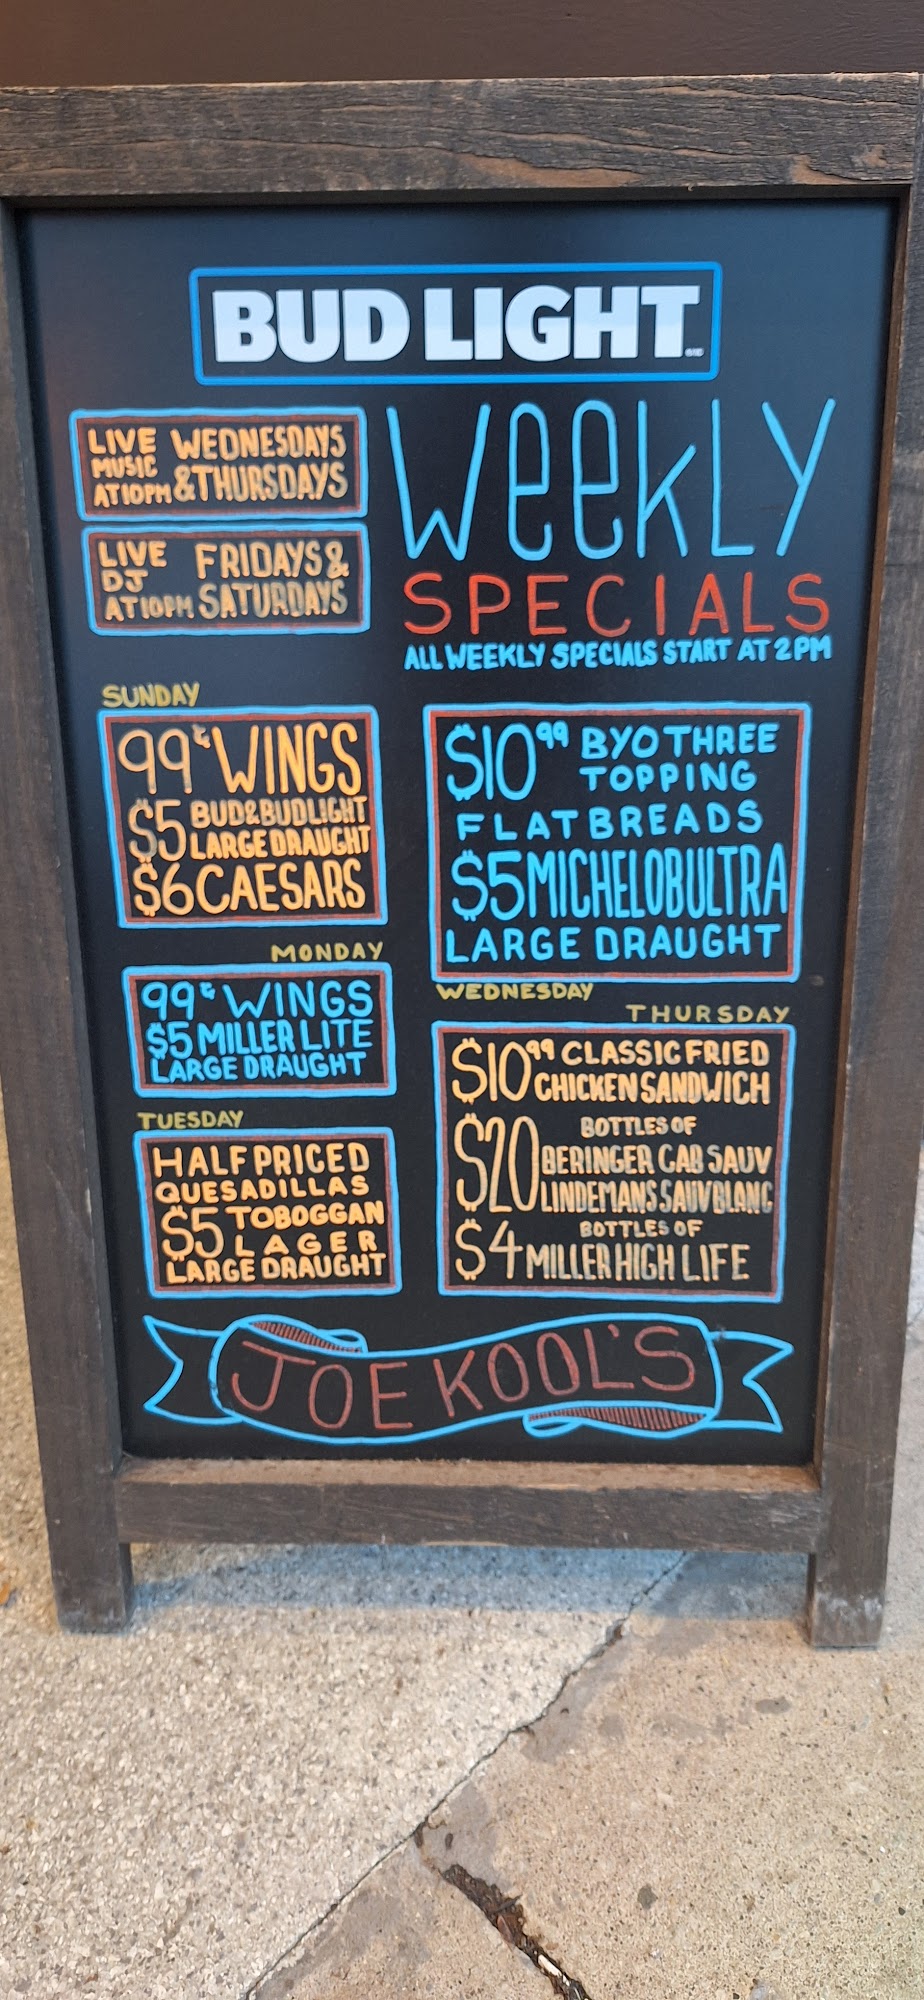 BUD LIGHT
LIVE MUSIC AT 10PM WEDNESDAYS & THURSDAYS
LIVE DJ AT 10PM FRIDAYS & SATURDAYS
WEEKLY
SPECIALS
ALL WEEKLY SPECIALS START AT 2PM
SUNDAY
99¢ WINGS
$5 BUD & BUDLIGHT
LARGE DRAUGHT
$6 CAESARS
MONDAY
99¢ WINGS
$5 MILLER LITE
LARGE DRAUGHT
TUESDAY
HALF PRICED
QUESADILLAS
$5 TOBOGGAN
LAGER
LARGE DRAUGHT
$10.99 BYO THREE
TOPPING
FLATBREADS
$5 MICHELOB ULTRA
LARGE DRAUGHT
WEDNESDAY
THURSDAY
$10.99 CLASSIC FRIED
CHICKEN SANDWICH
$20 BOTTLES OF
BERINGER CAB SAUV
LINDEMANS SAUV BLANC
$4 BOTTLES OF
MILLER HIGH LIFE
JOE KOOL'S